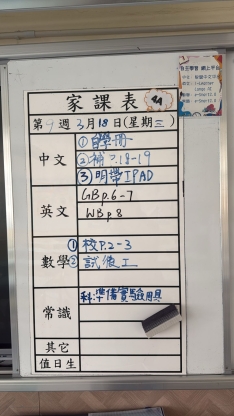 家課表 4A
第9週3月18日(星期三)
中文
①自學冊
②補P.18-19
③明帶IPAD
英文
GBp.6-7
WBp8
數學
①校P.2-3
②試後工
常識
科:準備實驗用具
其它
值日生
自主學習 網上平台